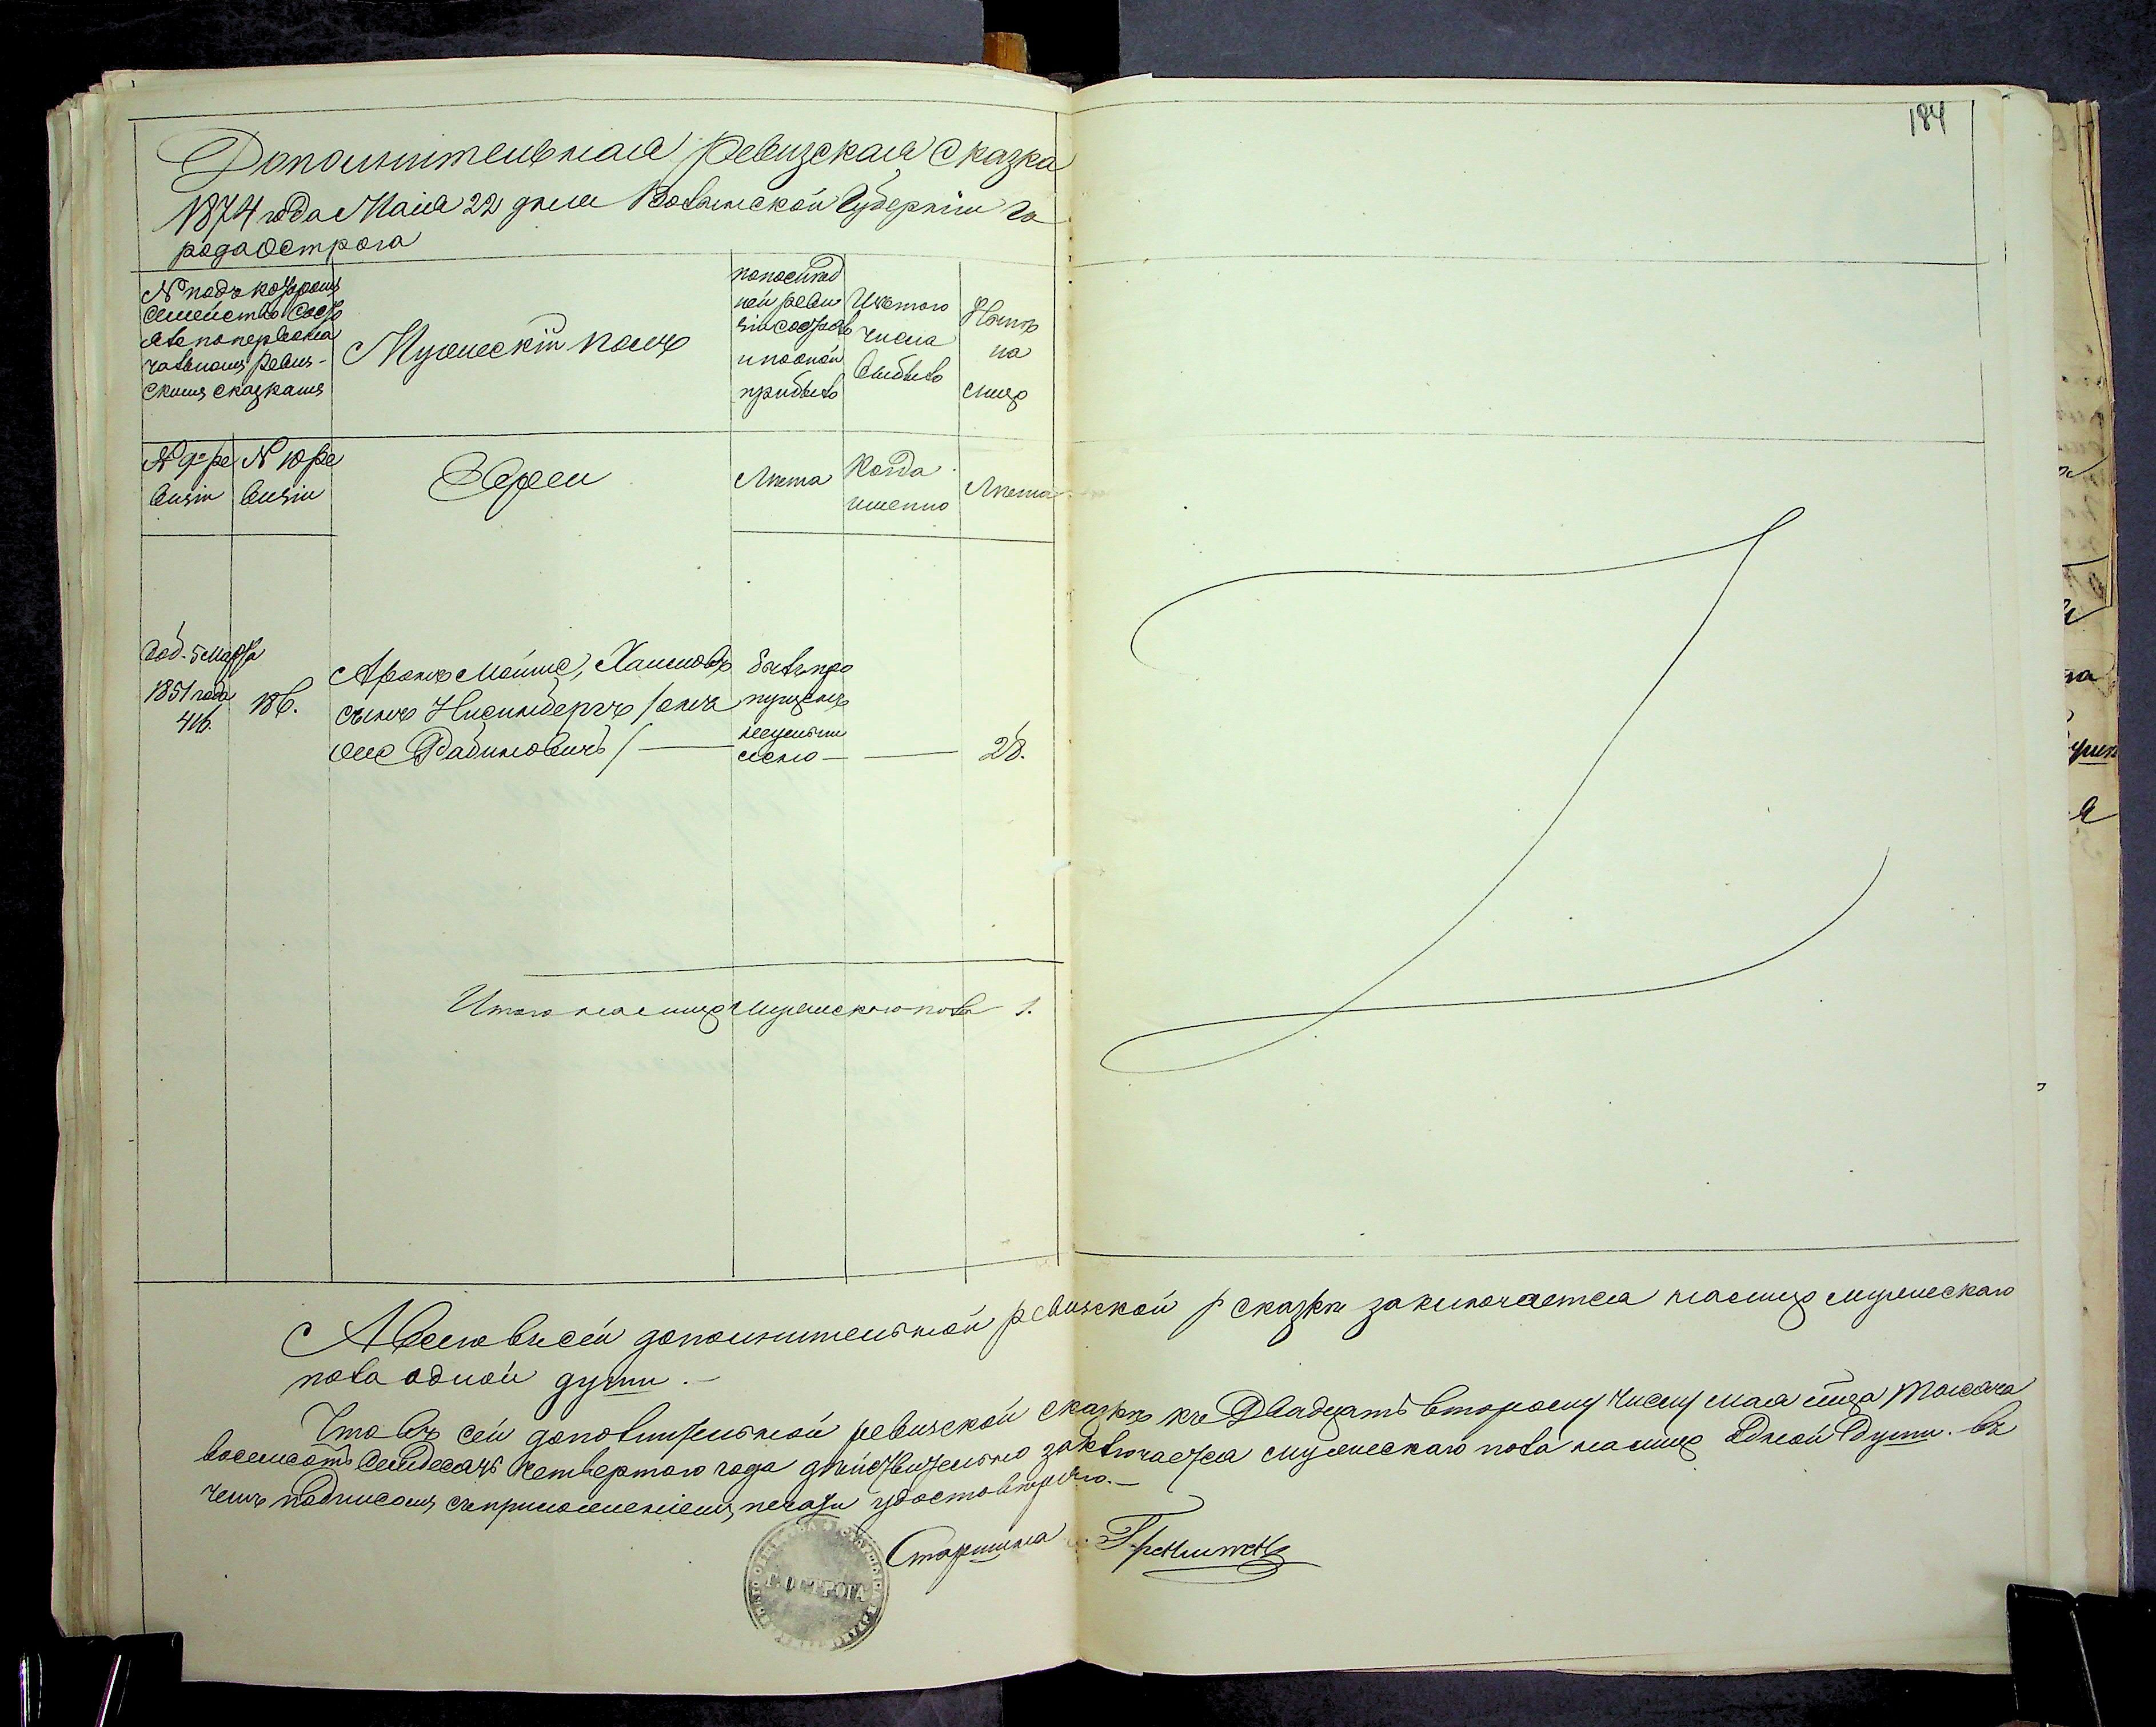 184
Дополнительная ревизская сказка
1874 года Мая 22 дня Волынской Губернии го
рода Острога
№ подъ которымъ
семейство состо
яло по первона
чальнымъ ревиз-
скимъ сказкамъ
Мужескій полъ
по послѣд
ней реви
зіи состояло
и по оной
прибыло
Изъ того
числа
выбыло
Нынѣ
на
лицо
№ 9й ре
визіи
№ 10 ре
визіи
Евреи
Лѣта
Когда
именно
Лѣта
доп. 5 Марта
1851 года
416.
186.
Аронъ Мойше, Хаимовъ
сынъ Нисинбергъ /онъ
же Рабиновичъ/ —
былъ про
пущенъ
неумыш
ленно —
28.
Итого на лицо мужескаго пола 1.
А всего въ сей дополнительной ревизской сказкѣ заключается на лицо мужескаго
пола одной души. —
Что въ сей дополнительной ревизской сказкѣ къ Двадцать второму числу мая мѣсяца тысяча
восемсотъ семдесятъ четвертого года дѣйствительно заключается мужескаго пола на лицо одной души. въ
чемъ подписомъ съ приложеніемъ печати удостовѣряю. —
Старшина
Г. ОСТРОГА